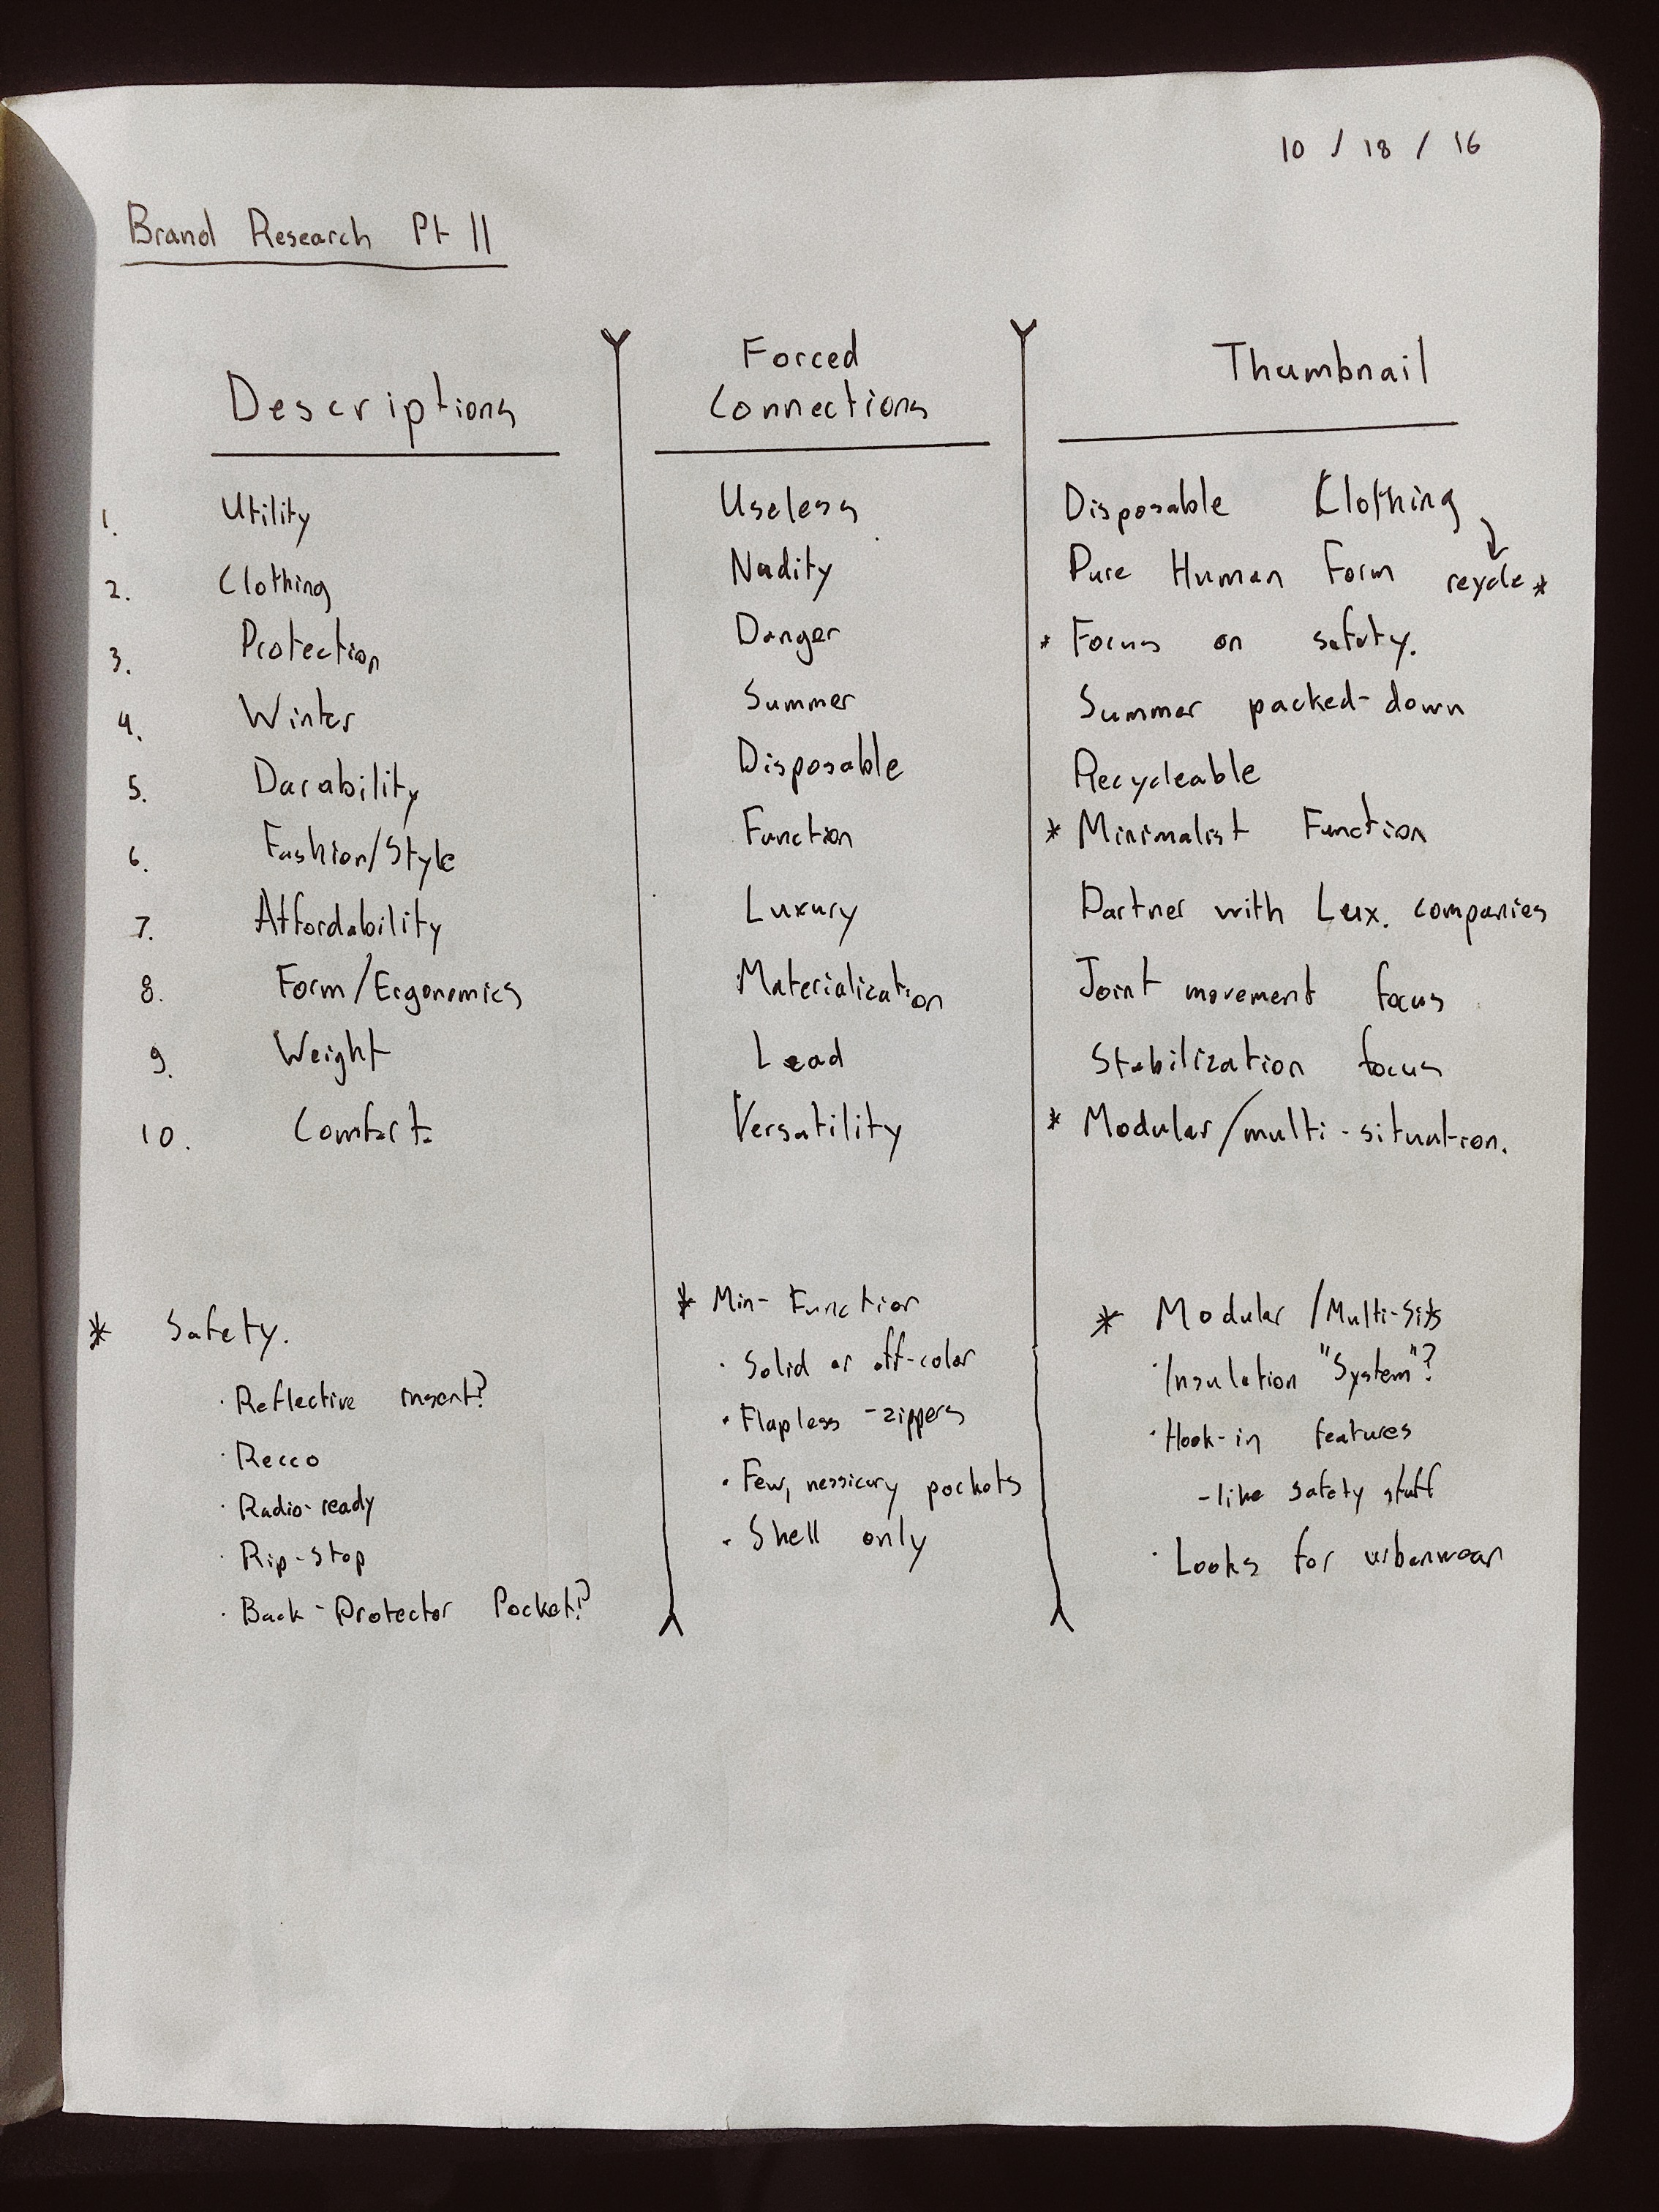 10 / 18 / 16
Brand Research Pt II
Descriptions
Forced
Connections
Thumbnail
1. Utility
Useless
Disposable Clothing
2. Clothing
Nudity
Pure Human Form recycle *
3. Protection
Danger
* Focus on safety.
4. Winter
Summer
Summer packed-down
5. Durability
Disposable
Recycleable
6. Fashion/Style
Function
* Minimalist Function
7. Affordability
Luxury
Partner with Lux. companies
8. Form/Ergonomics
Materialization
Joint movement focus
9. Weight
Lead
Stabilization focus
10. Comfort
Versatility
* Modular/multi-situation.
* Safety.
· Reflective insert?
· Recco
· Radio-ready
· Rip-stop
· Back-Protector Pocket?
* Min- Function
· Solid or off-color
· Flapless -zippers
· Few, nessicary pockets
· Shell only
* Modular /Multi-Sits
· Insulation "System"?
· Hook-in features
-like safety stuff
· Looks for urbanwear